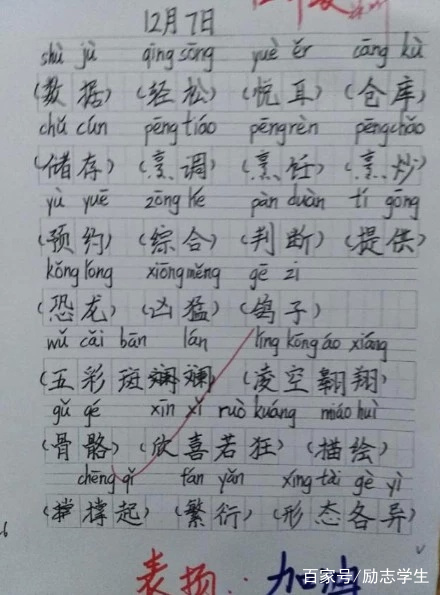 12月7日
shù jù qīng sōng yuè ěr cāng kù
(数据)(轻松)(悦耳)(仓库)
chǔ cún pēng tiáo pēng rèn pēng chǎo
(储存)(烹调)(烹饪)(烹炒)
yù yuē zōng hé pàn duàn tí gōng
(预约)(综合)(判断)(提供)
kǒng lóng xiōng měng gē zi
(恐龙)(凶猛)(鸽子)
wǔ cǎi bān lán líng kōng áo xiáng
(五彩斑斓)(凌空翱翔)
gǔ gé xīn xǐ ruò kuáng miáo huì
(骨骼)(欣喜若狂)(描绘)
chēng qǐ fán yǎn xíng tài gè yì
(撑起)(繁衍)(形态各异)
表扬：加油
百家号/励志学生